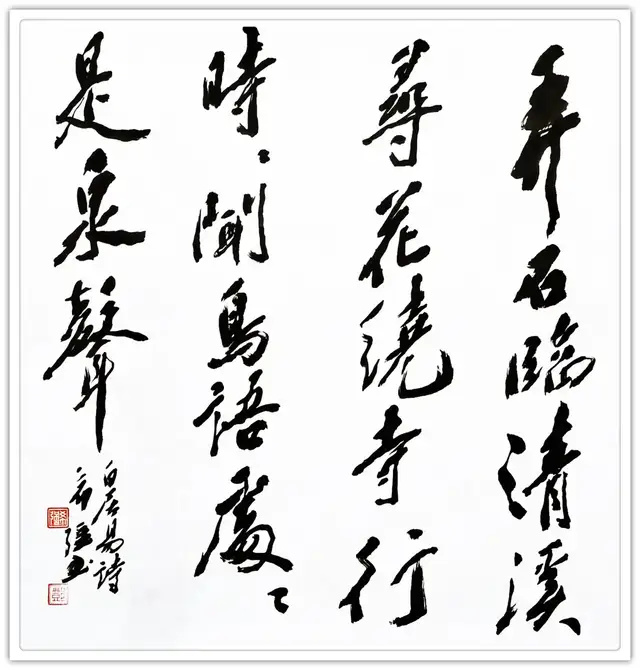 弄石臨清溪
尋花繞寺行
時〻聞鳥語處〻
是泉聲
白居易詩
书